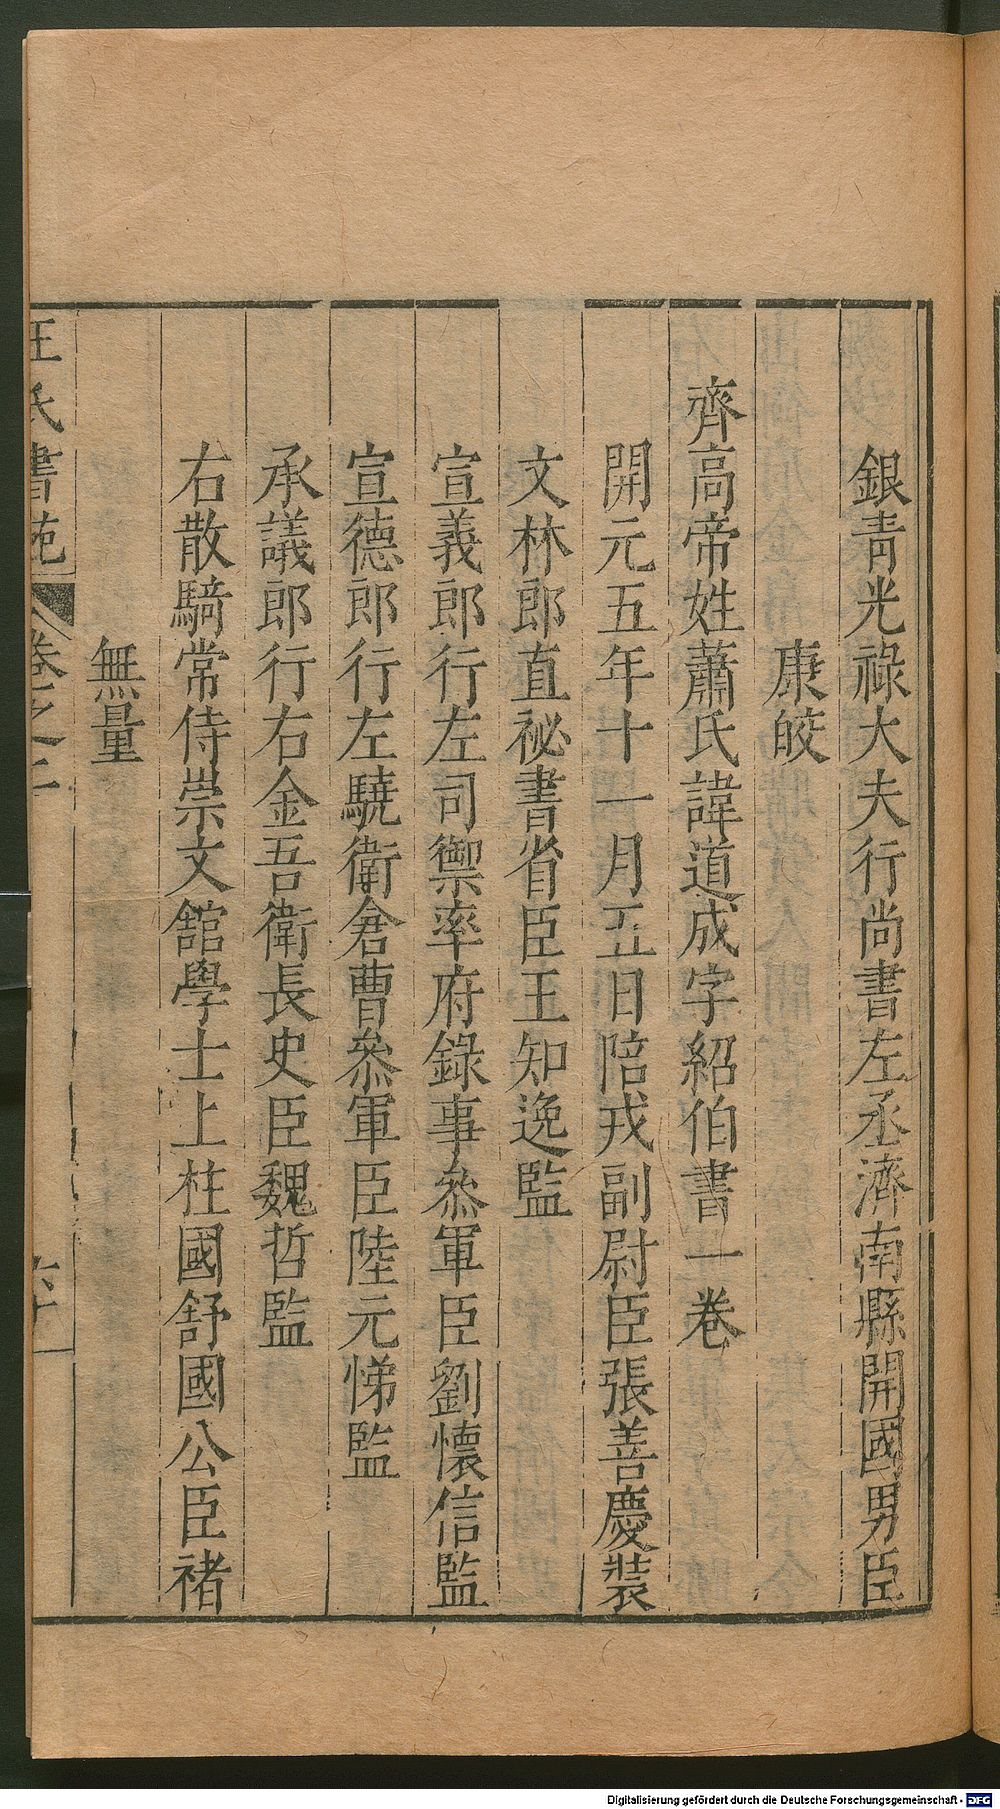 銀青光祿大夫行尚書左丞濟南縣開國男臣
康皎
齊高帝姓蕭氏諱道成字紹伯書一卷
開元五年十一月五日陪戎副尉臣張善慶裝
文林郎直祕書省臣王知逸監
宣義郎行左司禦率府錄事叅軍臣劉懷信監
宣德郎行左驍衛倉曹叅軍臣陸元悌監
承議郎行右金吾衛長史臣魏哲監
右散騎常侍崇文舘學士上柱國舒國公臣褚
無量
王氏書苑 卷之二
Digitalisierung gefördert durch die Deutsche Forschungsgemeinschaft - DFG